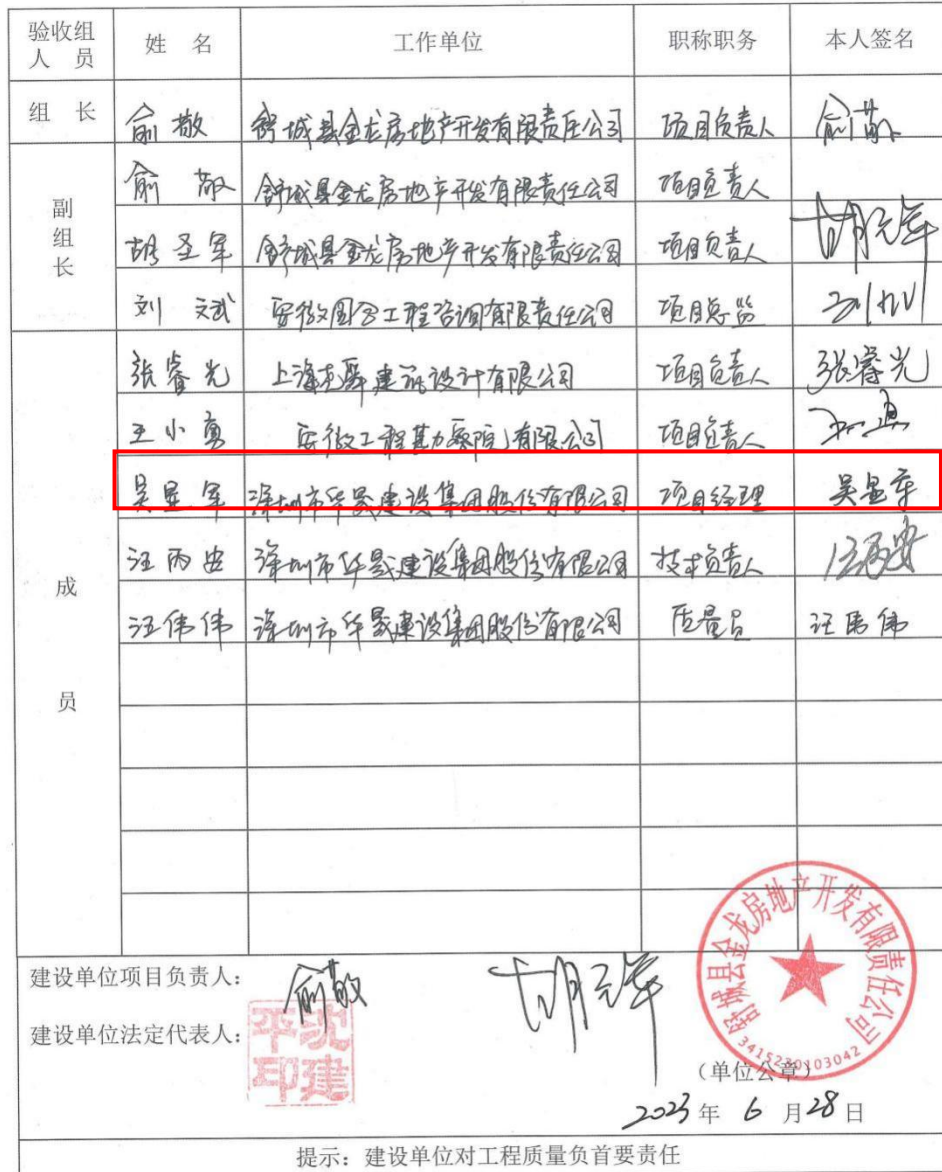 验收组人员 姓名 工作单位 职称职务 本人签名
组长 俞敬 舒城县金龙房地产开发有限责任公司 项目负责人 俞敬
副组长 俞敬 舒城县金龙房地产开发有限责任公司 项目负责人
胡圣军 舒城县金龙房地产开发有限责任公司 项目负责人
刘斌 工程咨询有限责任公司 项目总监
成员 张睿光 上海 建筑设计有限公司 项目负责人 张睿光
王小勇 安徽工程 有限公司 项目负责人
吴昱军 深圳市华晟建设集团股份有限公司 项目经理 吴昱军
汪丙安 深圳市华晟建设集团股份有限公司 技术负责人 汪丙安
汪伟伟 深圳市华晟建设集团股份有限公司 质量员 汪伟伟
建设单位项目负责人: 俞敬
建设单位法定代表人:
舒城县金龙房地产开发有限责任公司
3415230103042
(单位公章)
2023年 6月28日
提示: 建设单位对工程质量负首要责任